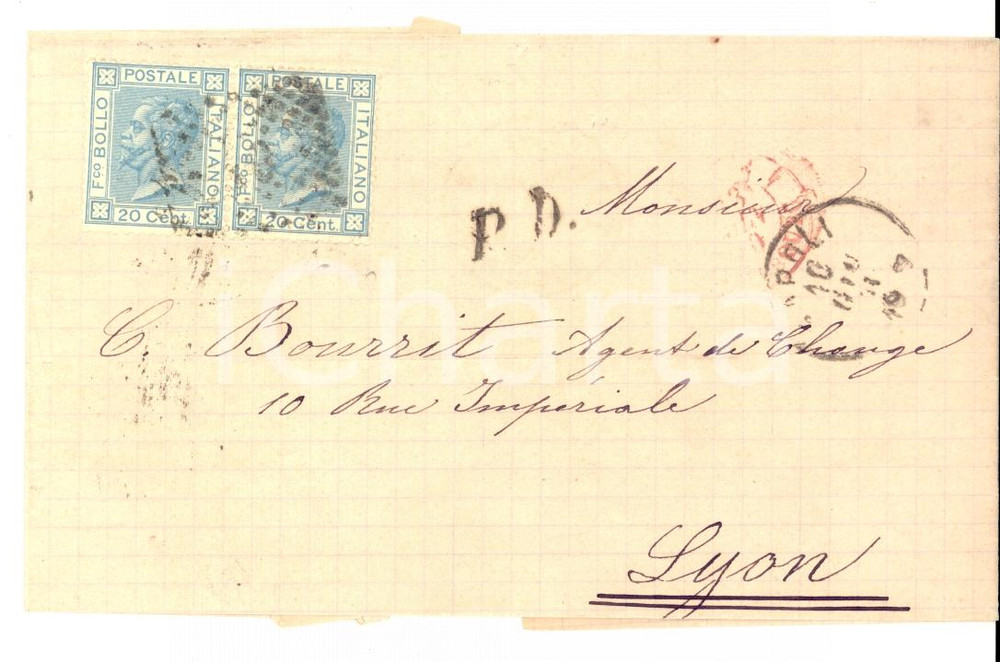 POSTALE
Fco BOLLO
ITALIANO
20 Cent.
POSTALE
Fco BOLLO
ITALIANO
20 Cent.
P. D.
Monsieur
10
C. Bourrit Agent de Change
10 Rue Impériale
Lyon
iCharta